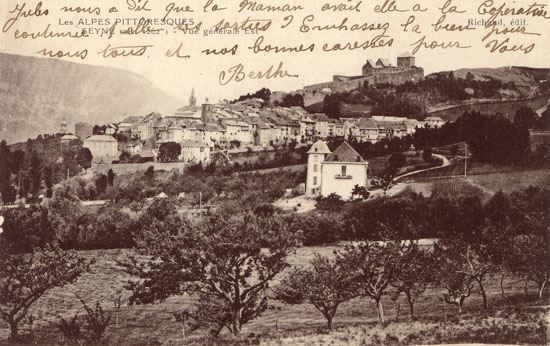 Jules nous a dit que la Maman avait elle a la Coopérative
Les ALPES PITTORESQUES
continue t elle ses sorties ? Embrassez la bien pour
Richaud, édit.
SEYNE Vue générale Est
nous tout et nos bonnes caresses pour Vous
Berthe